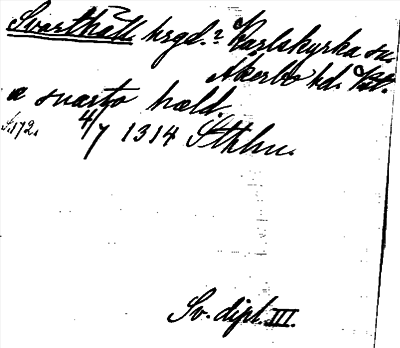 Svarthäll hrgd.? Karlskyrka sn.
Åkerbo hd. Vstm.
a suarto hæld
S. 172. 4/7 1314 Sthlm.
Sv. dipl. III.